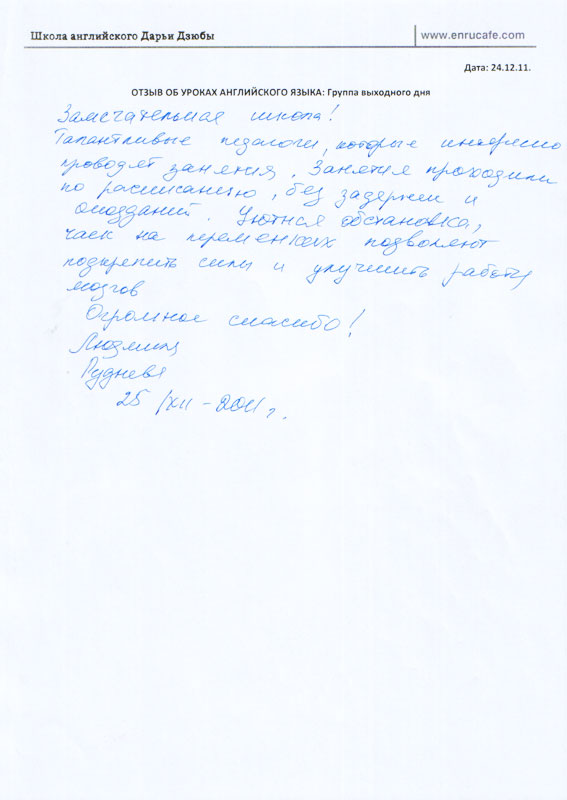 Школа английского Дарьи Дзюбы
www.enrucafe.com
Дата: 24.12.11.
ОТЗЫВ ОБ УРОКАХ АНГЛИЙСКОГО ЯЗЫКА: Группа выходного дня
Замечательная школа!
Талантливые педагоги, которые интересно
проводят занятия. Занятия проходили
по расписанию, без задержек и
опозданий. Уютная обстановка,
чаек на переменках позволяют
подкрепить силы и улучшить работу
мозгов
Огромное спасибо!
Людмила
Руднева
25/XII-2011г.